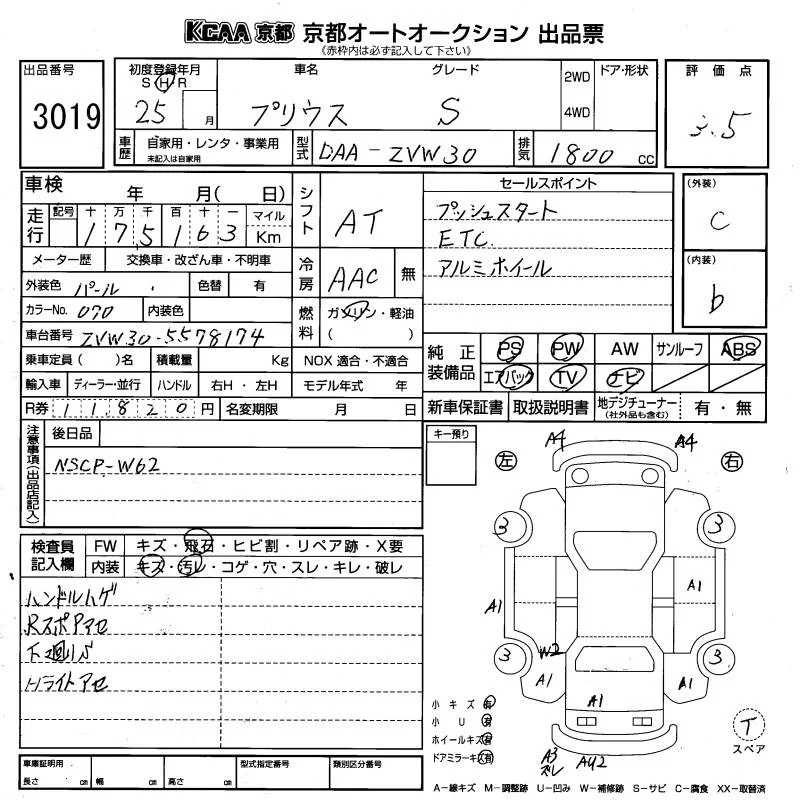 KCAA 京都 京都オートオークション 出品票
(赤枠内は必ず記入して下さい)
出品番号
3019
初度登録年月
S H R
25 月
車名
プリウス
グレード
S
2WD
4WD
ドア・形状
評価点
3.5
車歴
自家用・レンタ・事業用
未記入は自家用
型式
DAA-ZVW30
排気
1800 cc
車検
年 月( 日)
走行
記号 十 万 千 百 十 一 マイル
1 7 5 1 6 3 Km
シフト
AT
セールスポイント
プッシュスタート
ETC
アルミホイール
(外装)
C
(内装)
b
メーター歴 交換車・改ざん車・不明車
外装色 パール 色替 有
カラーNo. 070 内装色
車台番号 ZVW30-5578174
冷房
AAC 無
燃料
ガソリン・軽油
( )
乗車定員 ( )名 積載量 Kg NOX 適合・不適合
輸入車 ディーラー・並行 ハンドル 右H・左H モデル年式 年
R券 11820円 名変期限 月 日
純正装備品
PS PW AW サンルーフ ABS
エアバック TV ナビ
新車保証書 取扱説明書 地デジチューナー
(社外品も含む) 有・無
注意事項(出品店記入)
後日品
NSCP-W62
キー預り
検査員記入欄
FW キズ・飛石・ヒビ割・リペア跡・X要
内装 キズ・汚レ・コゲ・穴・スレ・キレ・破レ
ハンドルハゲ
RスポPアセ
下廻りS
Hライトアセ
左
右
A4 A4
3 3
A1 A1
3 3
W2
A1 A1 A1
A3
ズレ
AU2
小キズ 有
小U 有
ホイールキズ 有
ドアミラーキズ 有
T
スペア
車庫証明用
長さ cm 幅 cm 高さ cm
型式指定番号
類別区分番号
A-線キズ M-調整跡 U-凹み W-補修跡 S-サビ C-腐食 XX-取替済